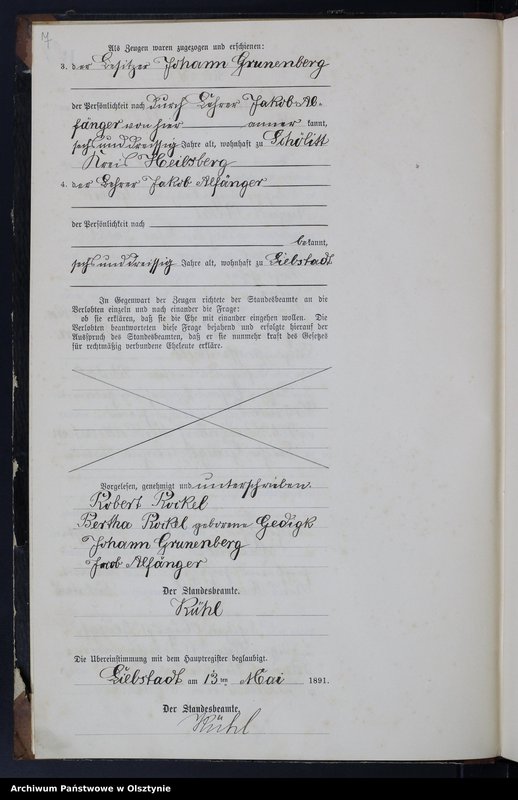 7
Als Zeugen waren zugezogen und erschienen:
3. der Besitzer Johann Grunenberg
der Persönlichkeit nach durch Lehrer Jakob Al-
fänger von hier anner kannt,
sechsunddreissig Jahre alt, wohnhaft zu Schölitt
Kreis Heilsberg
4. der Lehrer Jakob Alfänger
der Persönlichkeit nach
bekannt,
sechsunddreissig Jahre alt, wohnhaft zu Liebstadt
In Gegenwart der Zeugen richtete der Standesbeamte an die
Verlobten einzeln und nach einander die Frage:
ob sie erklären, daß sie die Ehe mit einander eingehen wollen. Die
Verlobten beantworteten diese Frage bejahend und erfolgte hierauf der
Ausspruch des Standesbeamten, daß er sie nunmehr kraft des Gesetzes
für rechtmäßig verbundene Eheleute erkläre.
Vorgelesen, genehmigt und unterschrieben.
Robert Rockel
Bertha Rockel geborene Gedigk
Johann Grunenberg
Jacob Alfänger
Der Standesbeamte.
Kühl
Die Übereinstimmung mit dem Hauptregister beglaubigt.
Liebstadt am 13ten Mai 1891.
Der Standesbeamte.
Kühl
Archiwum Państwowe w Olsztynie